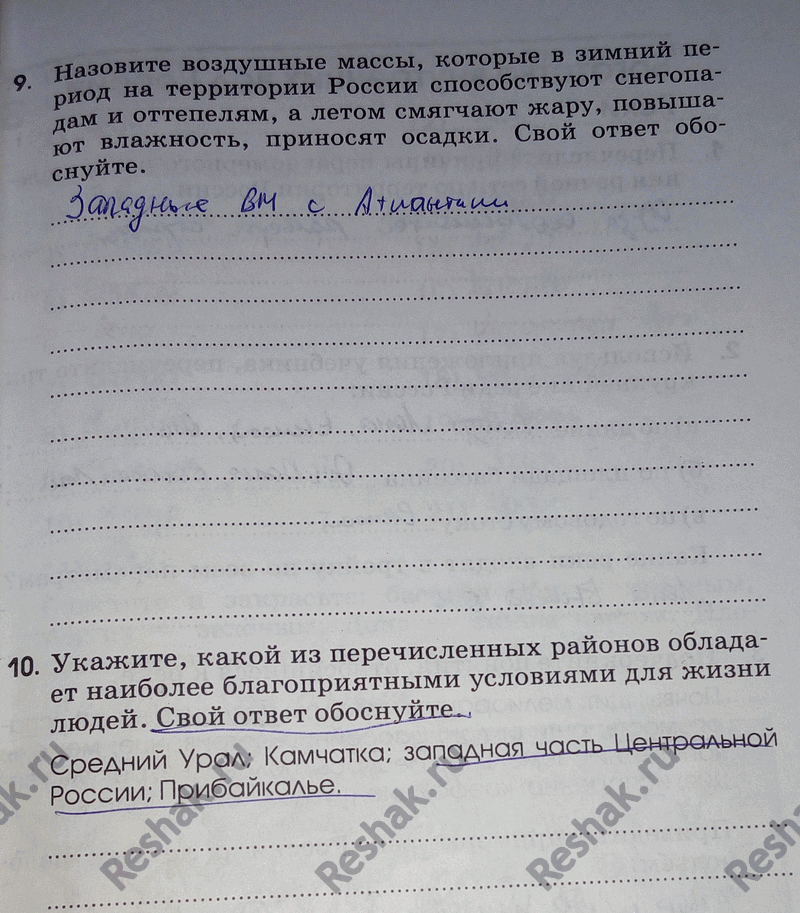 9. Назовите воздушные массы, которые в зимний пе-
риод на территории России способствуют снегопа-
дам и оттепелям, а летом смягчают жару, повыша-
ют влажность, приносят осадки. Свой ответ обо-
снуйте.
Западные ВМ с Атлантики
10. Укажите, какой из перечисленных районов облада-
ет наиболее благоприятными условиями для жизни
людей. Свой ответ обоснуйте.
Средний Урал; Камчатка; западная часть Центральной
России; Прибайкалье.
ak.ru
Reshak.ru
Reshak.ru
Reshak.ru
Resha